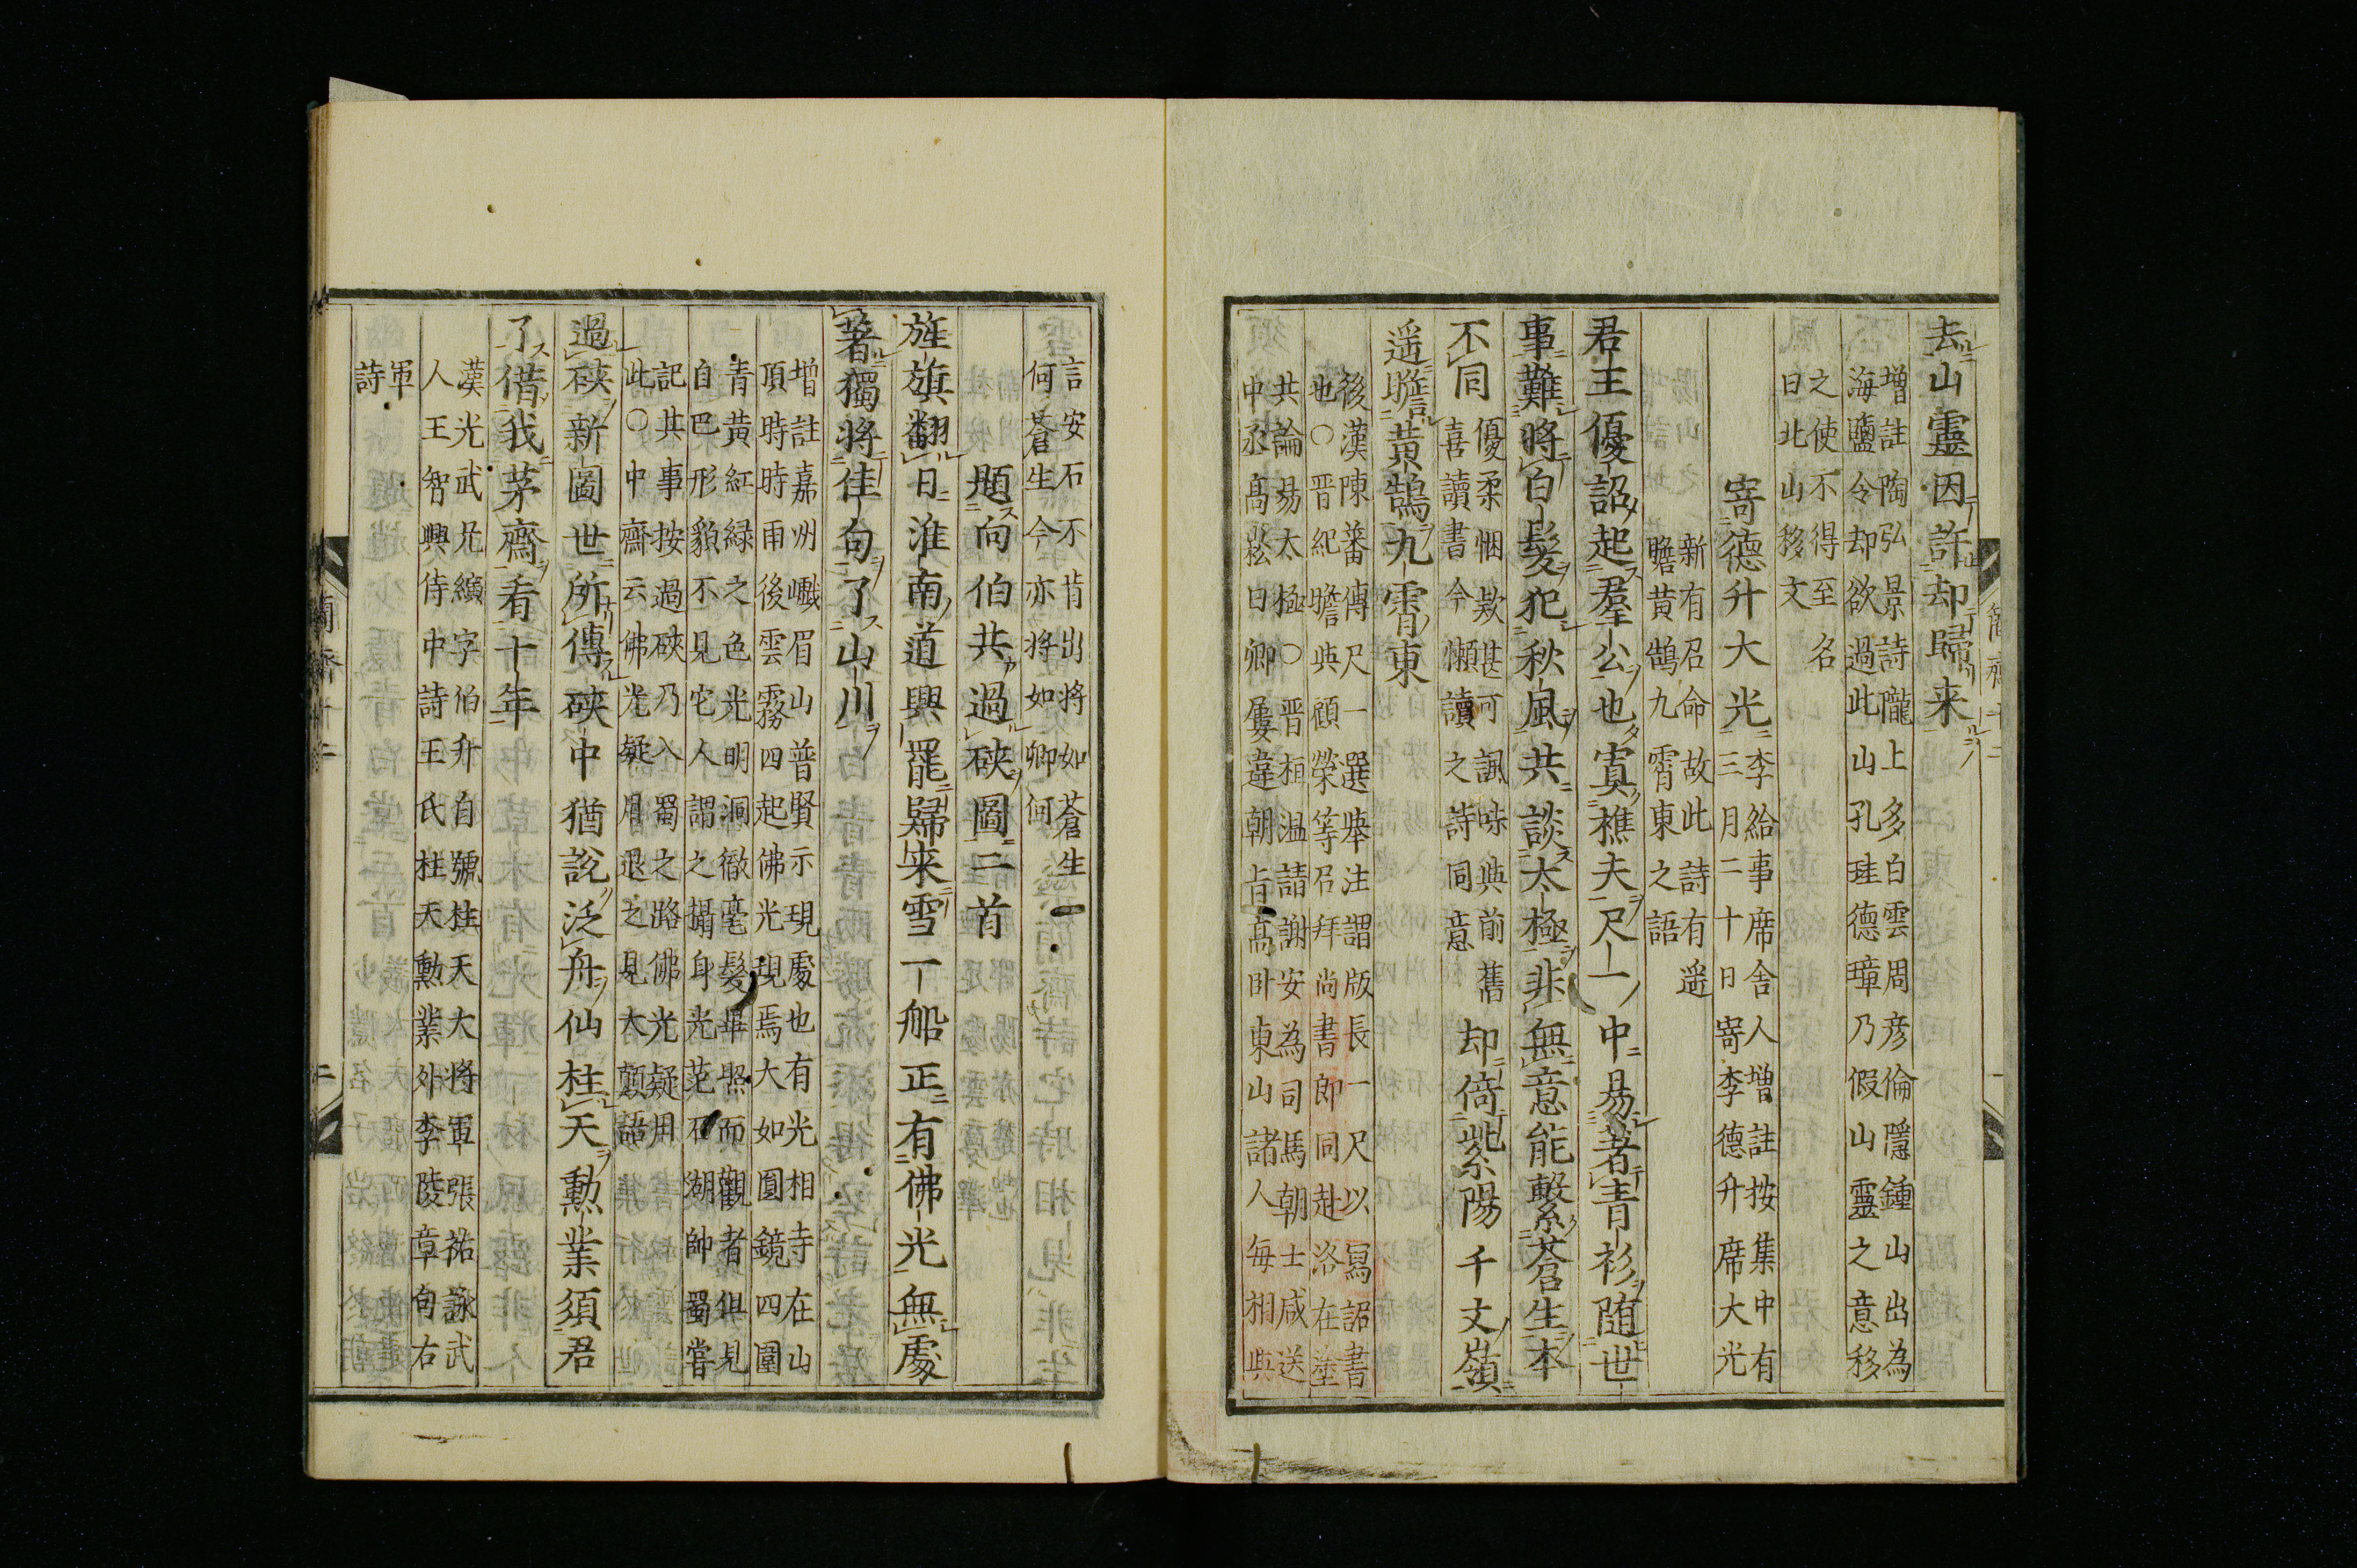 去山靈因許却歸来
増註陶弘景詩隴上多白雲周彦倫隱鍾山出為
海鹽令却欲過此山孔珪德璋乃假山靈之意移
之使不得至名
曰北山移文
寄德升大光
李給事席舍人増註按集中有
三月二十日寄李德升席大光
新有召命故此詩有遥
瞻黄鵠九霄東之語
君王優詔起羣公也寘樵夫尺一中易著青衫随世
事難將白髮犯秋風共談太極非無意能繫蒼生本
不同
優柔悃欵甚可諷味與前舊
喜讀書今懶讀之詩同意
却倚紫陽千丈嶺
遥瞻黄鵠九霄東
後漢陳蕃傳尺一選舉注謂版長一尺以冩詔書
也○晋紀瞻與顧榮等召拜尚書郎同赴洛在塗
共論易太極○晋桓温請謝安為司馬朝士咸送
中丞髙崧曰卿屢違朝㫖髙卧東山諸人毎相與
言安石不肯出將如蒼生
何蒼生今亦將如卿何
題向伯共過硤圖二首
旌旗翻日淮南道興罷歸来雪一船正有佛光無處
著獨將佳句了山川
増註嘉州巘眉山普賢示現處也有光相寺在山
頂時時雨後雲霧四起佛光現焉大如圓鏡四圍
青黄紅緑之色光明洞徹毫髪畢照而觀者俱見
自巴形貌不見它人謂之攝身光范石湖帥蜀嘗
記其事按過硤乃入蜀之路佛光疑用
此○中齋云佛光疑用退之見大顛語
過硤新圖世所傳硤中猶說泛舟仙柱天勲業須君
了借我茅齋看十年
漢光武兄縯字伯升自號柱天大將軍張祐詠武
人王智興侍中詩王氏柱天勲業外李陵章句右
軍
詩
簡齋十二
二